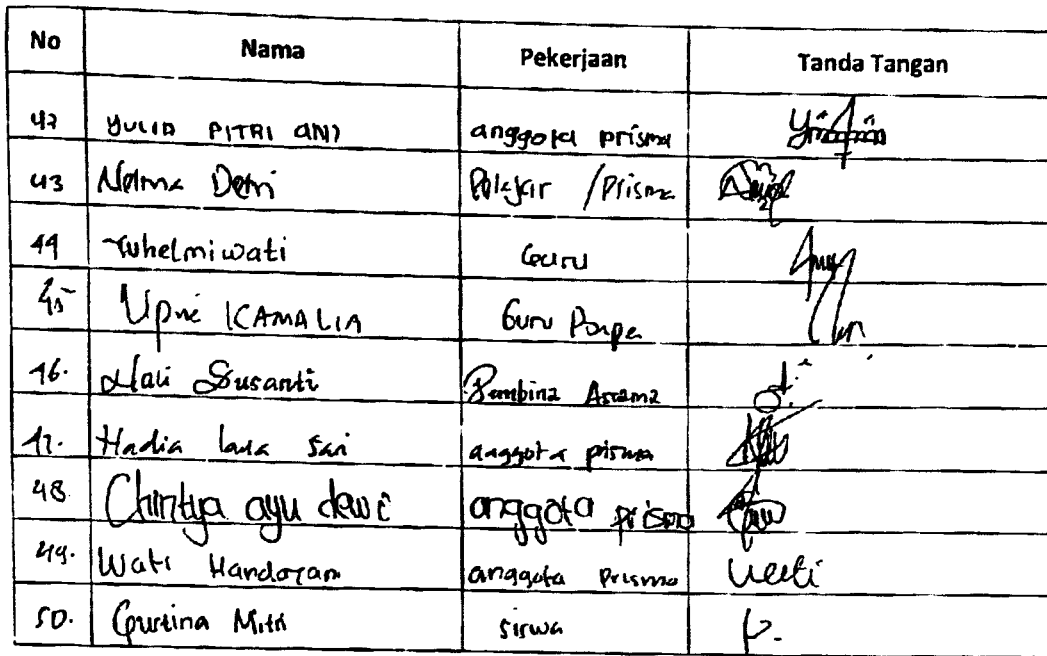 No Nama Pekerjaan Tanda Tangan
42 YULIA PITRI ANI anggota prisma
43 Nelma Detri Pelajar /Prisma
44 Yuhelmiwati Guru
45 KAMALIA Guru
46. Susanti Pembina Asrama
47. Hadia Sari anggota pisma
48 Chintya ayu dewi anggota prisma
49. Wati Handayani anggota prisma Wati
50. Mitri siswa P.